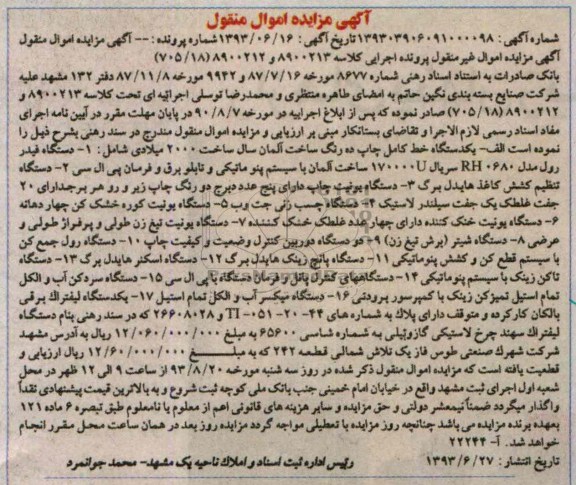 آگهی مزایده اموال منقول
شماره آگهی : ۱۳۹۳۰۳۹۰۶۰۹۱۰۰۰۰۹۸ تاریخ آگهی : ۱۳۹۳/۰۶/۱۶ شماره پرونده : -- آگهی مزایده اموال منقول
آگهی مزایده اموال غیرمنقول پرونده اجرایی کلاسه ۸۹۰۰۲۱۳ و ۸۹۰۰۲۱۲ (۷۰۵/۱۸)
بانک صادرات به استناد اسناد رهنی شماره ۸۶۷۷ مورخه ۸۷/۷/۱۶ و ۹۹۴۲ مورخه ۸۷/۱۱/۸ دفتر ۱۳۲ مشهد علیه
شرکت صنایع بسته بندی نگین حاتم به امضای طاهره منتظری و محمدرضا توسلی اجرائیه ای تحت کلاسه ۸۹۰۰۲۱۳ و
۸۹۰۰۲۱۲ (۷۰۵/۱۸) صادر نموده که پس از ابلاغ اجراییه در مورخه ۹۰/۸/۷ در پایان مهلت مقرر در آیین نامه اجرای
مفاد اسناد رسمی لازم الاجرا و تقاضای بستانکار مبنی بر ارزیابی و مزایده اموال منقول مندرج در سند رهنی بشرح ذیل را
نموده است الف- یکدستگاه خط کامل چاپ ده رنگ ساخت آلمان سال ساخت ۲۰۰۰ میلادی شامل: ۱- دستگاه فیدر
رول مدل RH ۰۶۸۰ سریال ۱۷۰۰۰۰U ساخت آلمان با سیستم پنوماتیکی و تابلو برق و فرمان پی ال سی ۲- دستگاه
تنظیم کشش کاغذ هایدل برگ ۳- دستگاه یونیت چاپ دارای پنج عدد دبرج دو رنگ چاپ زیر و رو هر برجدارای ۲۰
جفت غلطک یک جفت سیلندر لاستیک ۴- دستگاه چسب زنی جت وب ۵- دستگاه یونیت کوره خشک کن چهار دهانه
۶- دستگاه یونیت خنک کننده دارای چهار عدد غلطک خنک کننده ۷- دستگاه یونیت تیغ زن طولی و پرفراژ طولی و
عرضی ۸- دستگاه شیتر (برش تیغ زن) ۹- دو دستگاه دوربین کنترل وضعیت و کیفیت چاپ ۱۰- دستگاه رول جمع کن
با سیستم قطع کن و کشش پنوماتیکی ۱۱- دستگاه پانچ زینک هایدل برگ ۱۲- دستگاه اسکنر هایدل برگ ۱۳- دستگاه
تاکن زینک با سیستم پنوماتیکی ۱۴- دستگاههای کنترل پانل و فرمان دستگاه با پی ال سی ۱۵- دستگاه سردکن آب و الکل
تمام استیل تمیزکن زینک با کمپرسور برودتی ۱۶- دستگاه میکسر آب و الکل تمام استیل ۱۷- یکدستگاه لیفتراک برقی
بالکان کارکرده و متوقف دارای پلاک به شماره های ۴۴-۲۰-۰۵۱-TI و ۲۶۶۰۸۰۲۸ که در سند رهنی بنام دستگاه
لیفتراک سهند چرخ لاستیکی گازوئیلی به شماره شاسی ۶۵۶۰۰ به مبلغ ۱۲/۰۶۰/۰۰۰/۰۰۰ ریال به آدرس مشهد
شرکت شهرک صنعتی طوس فاز یک تلاش شمالی قطعه ۲۴۲ که به مبلغ ۱۲/۶۰/۰۰۰/۰۰۰ ریال ارزیابی و
قطعیت یافته است که مزایده اموال منقول ذکر شده در روز سه شنبه مورخه ۹۳/۸/۲۰ از ساعت ۹ الی ۱۲ ظهر در محل
شعبه اول اجرای ثبت مشهد واقع در خیابان امام خمینی جنب بانک ملی کوچه ثبت شروع و به بالاترین قیمت پیشنهادی نقداً
واگذار میگردد ضمناً نیمعشر دولتی و حق مزایده و سایر هزینه های قانونی اعم از معلوم یا نامعلوم طبق تبصره ۶ ماده ۱۲۱
بعهده برنده مزایده می باشد چنانچه روز مزایده با تعطیلی مواجه گردد مزایده روز بعد در همان ساعت محل مقرر انجام
خواهد شد. آ- ۲۲۲۴۴
تاریخ انتشار: ۱۳۹۳/۶/۲۷ رئیس اداره ثبت اسناد و املاک ناحیه یک مشهد- محمد جوانمرد